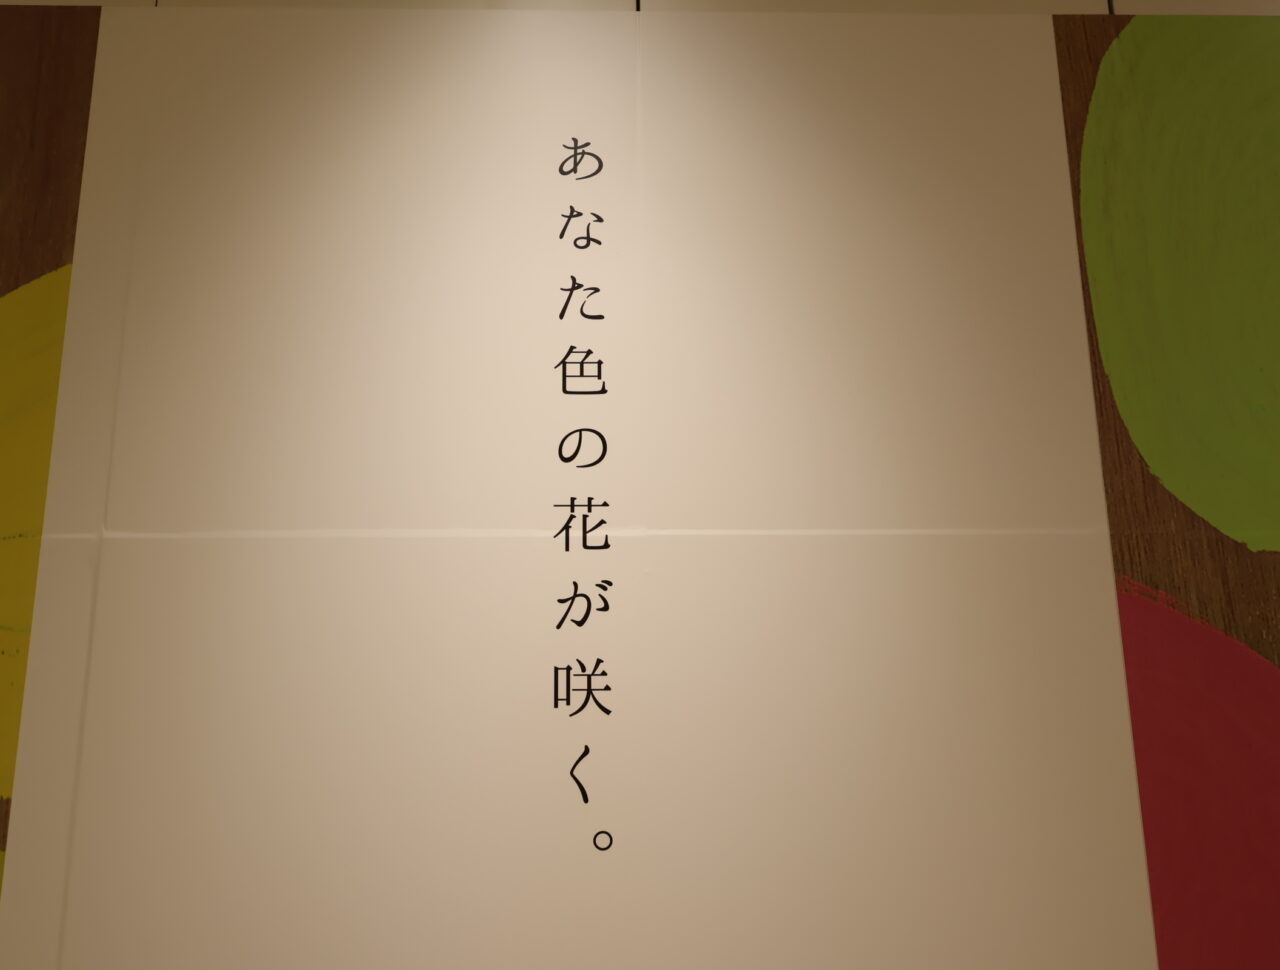 あなた色の花が咲く。